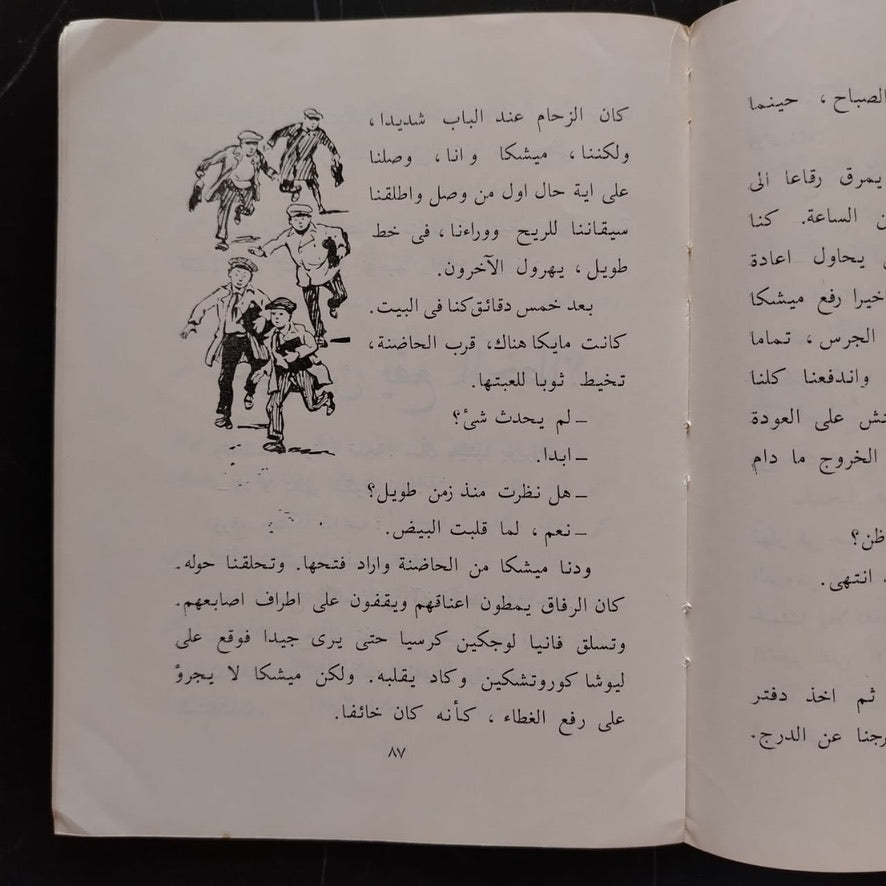 الصباح ، حينما
يمرق رقاعا الى
الساعة. كنا
يحاول اعادة
رفع ميشكا
الجرس ، تماما
واندفعنا كلنا
على العودة
الخروج ما دام
انتهى.
ثم اخذ دفتر
عن الدرج.
كان الزحام عند الباب شديدا ،
ولكننا ، ميشكا و انا ، وصلنا
على اية حال اول من وصل واطلقنا
سيقاننا للريح ووراءنا ، فى خط
طويل ، يهرول الآخرون.
بعد خمس دقائق كنا فى البيت.
كانت مايكا هناك، قرب الحاضنة ،
تخيط ثوبا للعبتها.
ــ لم يحدث شئ؟
ــ ابدا.
ــ هل نظرت منذ زمن طويل؟
ــ نعم ، لما قلبت البيض.
ودنا ميشكا من الحاضنة واراد فتحها. وتحلقنا حوله.
كان الرفاق يمطون اعناقهم ويقفون على اطراف اصابعهم.
وتسلق فانيا لوجكين كرسيا حتى يرى جيدا فوقع على
ليوشا كوروتشكين وكاد يقلبه. ولكن ميشكا لا يجرؤ
على رفع الغطاء ، كأنه كان خائفا.
٨٧